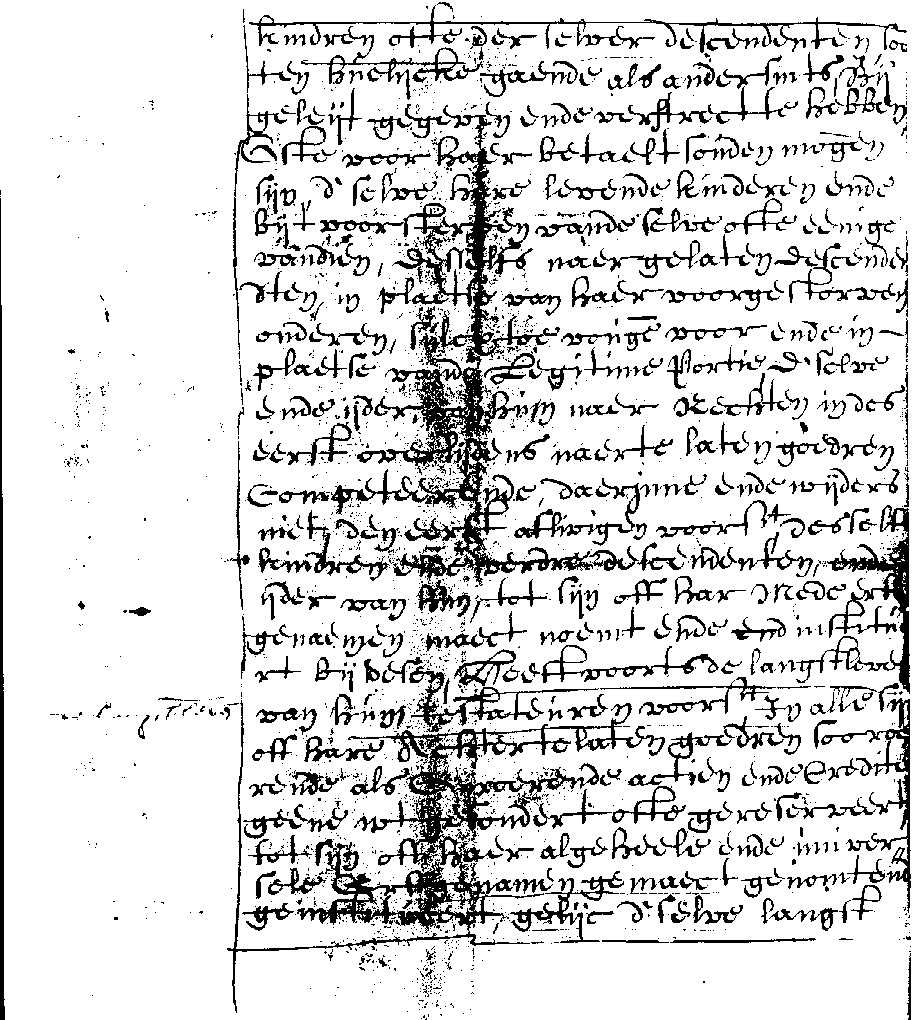 kindren ofte der selver descendenten, soo
ten huelijcke gaende als andersints, Bij
geleijt gegeven ende verstrect te hebben,
Ofte voor haer betaelt souden mogen
sijn, d'selve hare levende kinderen ende
bijt voor sterven vande selve ofte eenige
vandien, desselfs naergelaten descende
dten, in plaetse van haer voorgestorven
onderen, voor ende in
plaetse vande Legitime Portie, d'selve
ende ijder van hun naer Rechten in des
eerst overlijdens naerte laten goedren
Competeerende, daerinne ende wijders
niet, den eerst aflivigen voorst, desselfs
kindren ende verdre descendenten, ende
ijder van hun, tot sijn off har Mede erf
genaemen maect noemt ende institue
rt bij desen, Heeft voorts de langstleve
van hun testateuren voorst In alle sijn
off hare Achter te laten goedren soo roe
rende als Onroerende actien ende Credite
geene wtgesondert ofte gereserveert
tot sijn ofte haer algeheele ende univer
sele Erfgenamen gemaect genomt ende
geinstitueert, gelijc d'selve langst